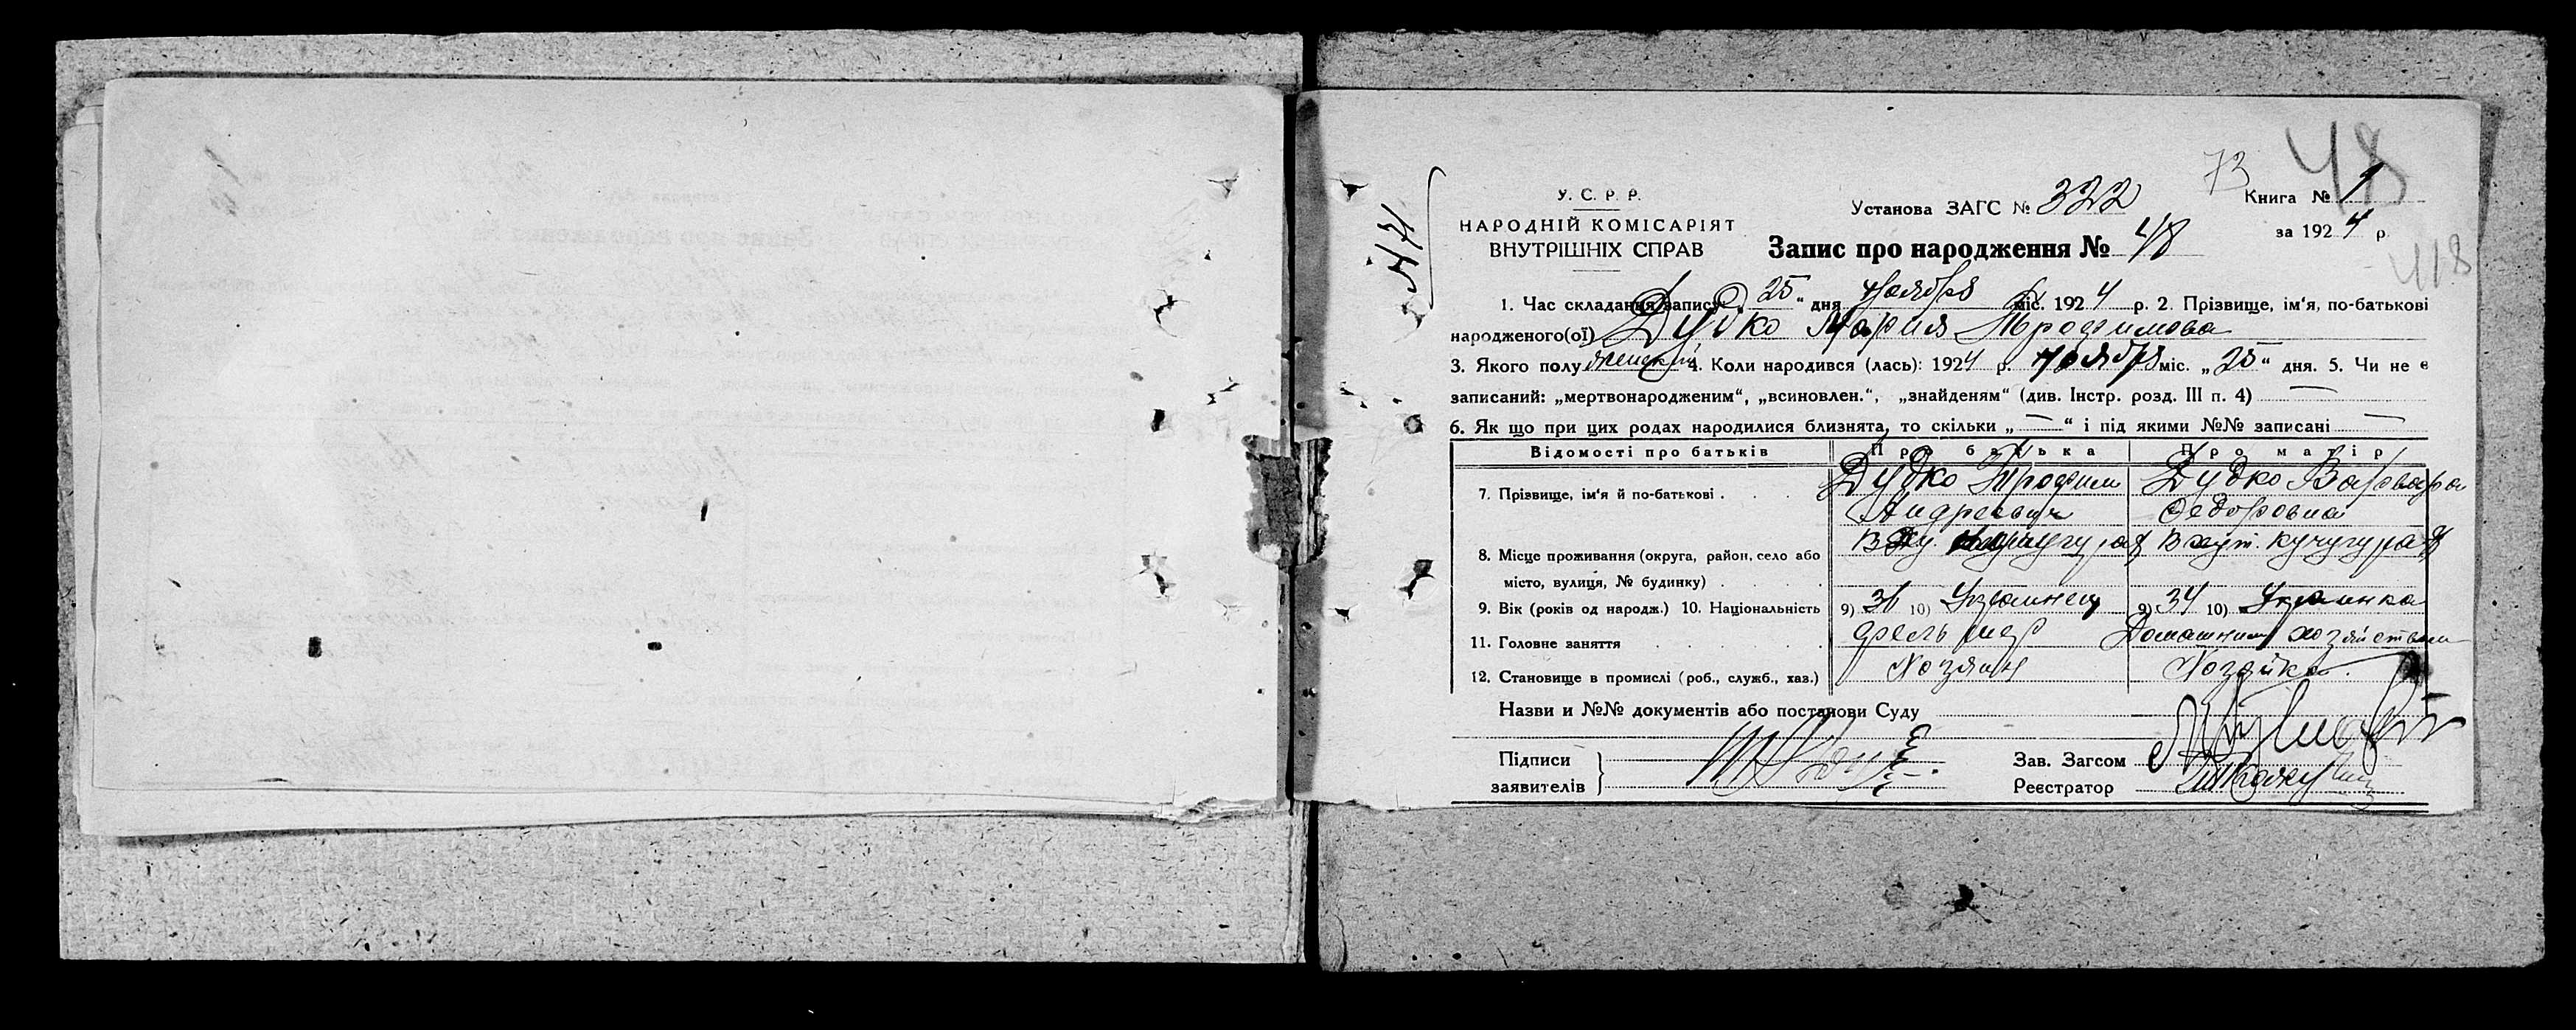 У. С. Р. Р.
НАРОДНІЙ КОМІСАРІЯТ
ВНУТРІШНІХ СПРАВ
Установа ЗАГС № 322
73
48
Книга № 1
за 1924 р.
Запис про народження № 48
418
1. Час складання запису „25“ дня ноября міс. 1924 р. 2. Прізвище, ім‘я, по-батькові
народженого(ої) Дудко Мария Трофимова
3. Якого полу женский 4. Коли народився (лась): 1924 р. ноября міс. „25“ дня. 5. Чи не є
записаний: „мертвонародженим“, „всиновлен.“, „знайденям“ (див. Інстр. розд. III п. 4) —
6. Як що при цих родах народилися близнята, то скільки „—“ і під якими №№ записані —
Відомості про батьків Про батька Про матір
7. Прізвище, ім‘я й по-батькові . . . Дудко Трофим Дудко Варвара
Андреевич Федоровна
8. Місце проживання (округа, район, село або В ху. Кучугурах В хут. Кучугурах
місто, вулиця, № будинку) . . . .
9. Вік (років од народж.) 10. Національність 9) 36 10) Украинец 9) 34 10) Украинка
11. Головне заняття . . . . . Домашним хозяйством
12. Становище в промислі (роб., служб., хаз.) Хозяин Хозяйка.
Назви и №№ документів або постанови Суду
Підписи
заявителів
Зав. Загсом
Реєстратор